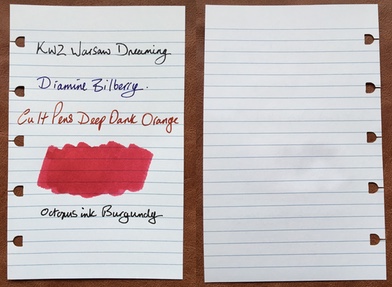 KWZ Warsaw Dreaming
Diamine Bilberry.
Cult Pens Deep Dark Orange
Octopus ink Burgundy